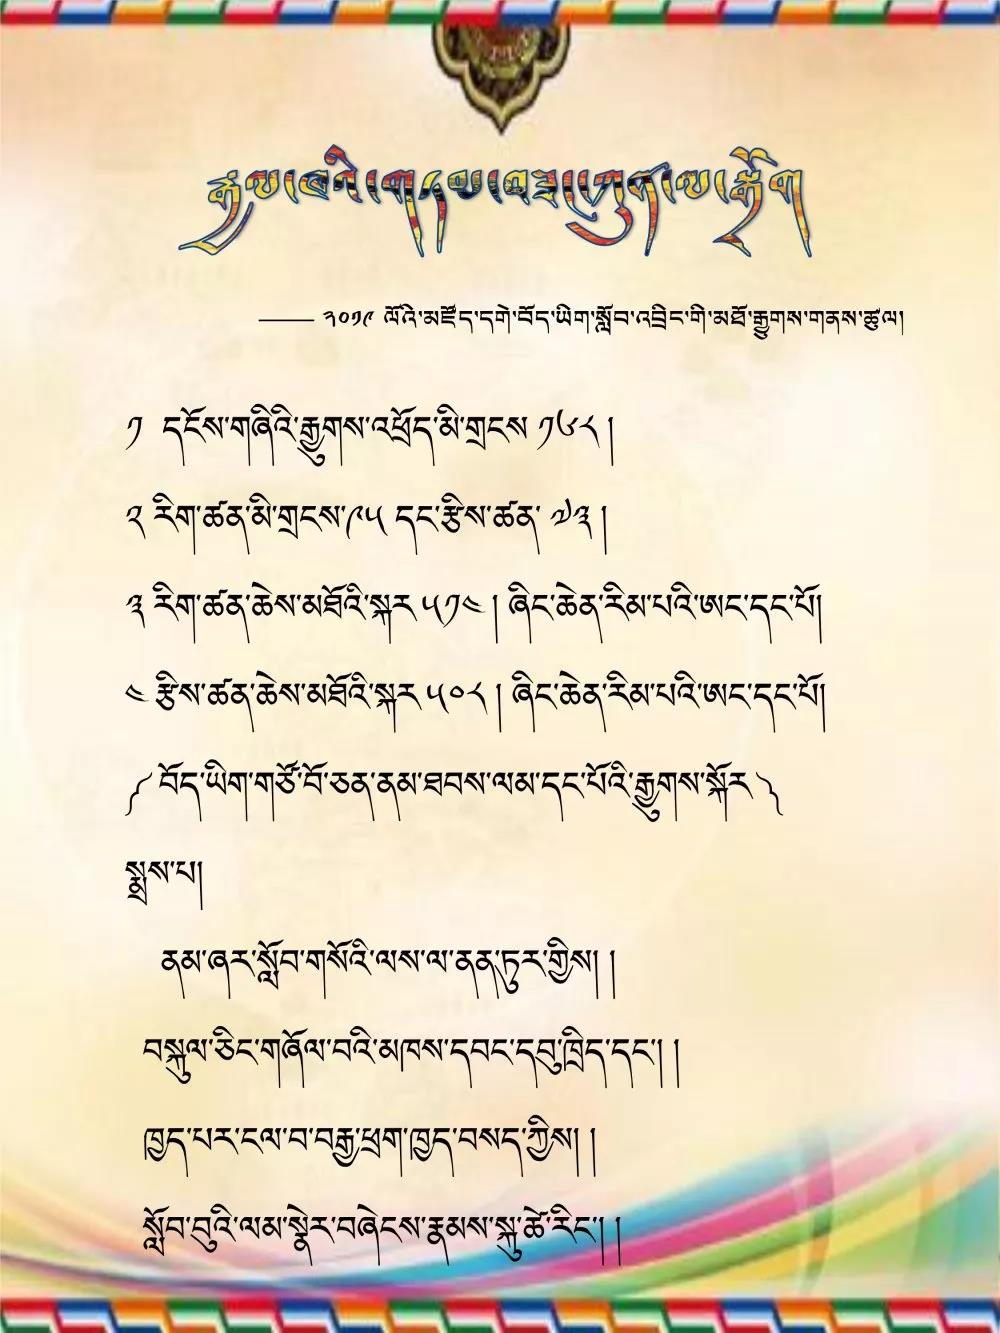 རྒྱལ་ཁའི་གཏམ་བཟང་ཀུན་ལ་སྒྲོག
—— ༢༠༡༩ ལོའི་མཛོད་དགེ་བོད་ཡིག་སློབ་འབྲིང་གི་མཐོ་རྒྱུགས་གནས་ཚུལ།
༡ དངོས་གཞིའི་རྒྱུགས་འཕྲོད་མི་གྲངས ༡༦༨ །
༢ རིག་ཚན་མི་གྲངས་༩༥ དང་རྩིས་ཚན་ ༧༣ །
༣ རིག་ཚན་ཆེས་མཐོའི་སྐར ༥༡༤ ། ཞིང་ཆེན་རིམ་པའི་ཨང་དང་པོ།
༤ རྩིས་ཚན་ཆེས་མཐོའི་སྐར ༥༠༨ ། ཞིང་ཆེན་རིམ་པའི་ཨང་དང་པོ།
༼ བོད་ཡིག་གཙོ་བོ་ཅན་ནམ་ཐབས་ལམ་དང་པོའི་རྒྱུགས་སྐོར ༽
སྨྲས་པ།
ནམ་ཞར་སློབ་གསོའི་ལས་ལ་ནན་ཏུར་གྱིས། །
བསྐུལ་ཅིང་གཞོལ་བའི་མཁས་དབང་དབུ་ཁྲིད་དང་། །
ཁྱད་པར་ངལ་བ་བརྒྱ་ཕྲག་ཁྱད་བསད་ཀྱིས། །
སློབ་བུའི་ལམ་སྣེར་བཞེངས་རྣམས་སྐུ་ཚེ་རིང་། །